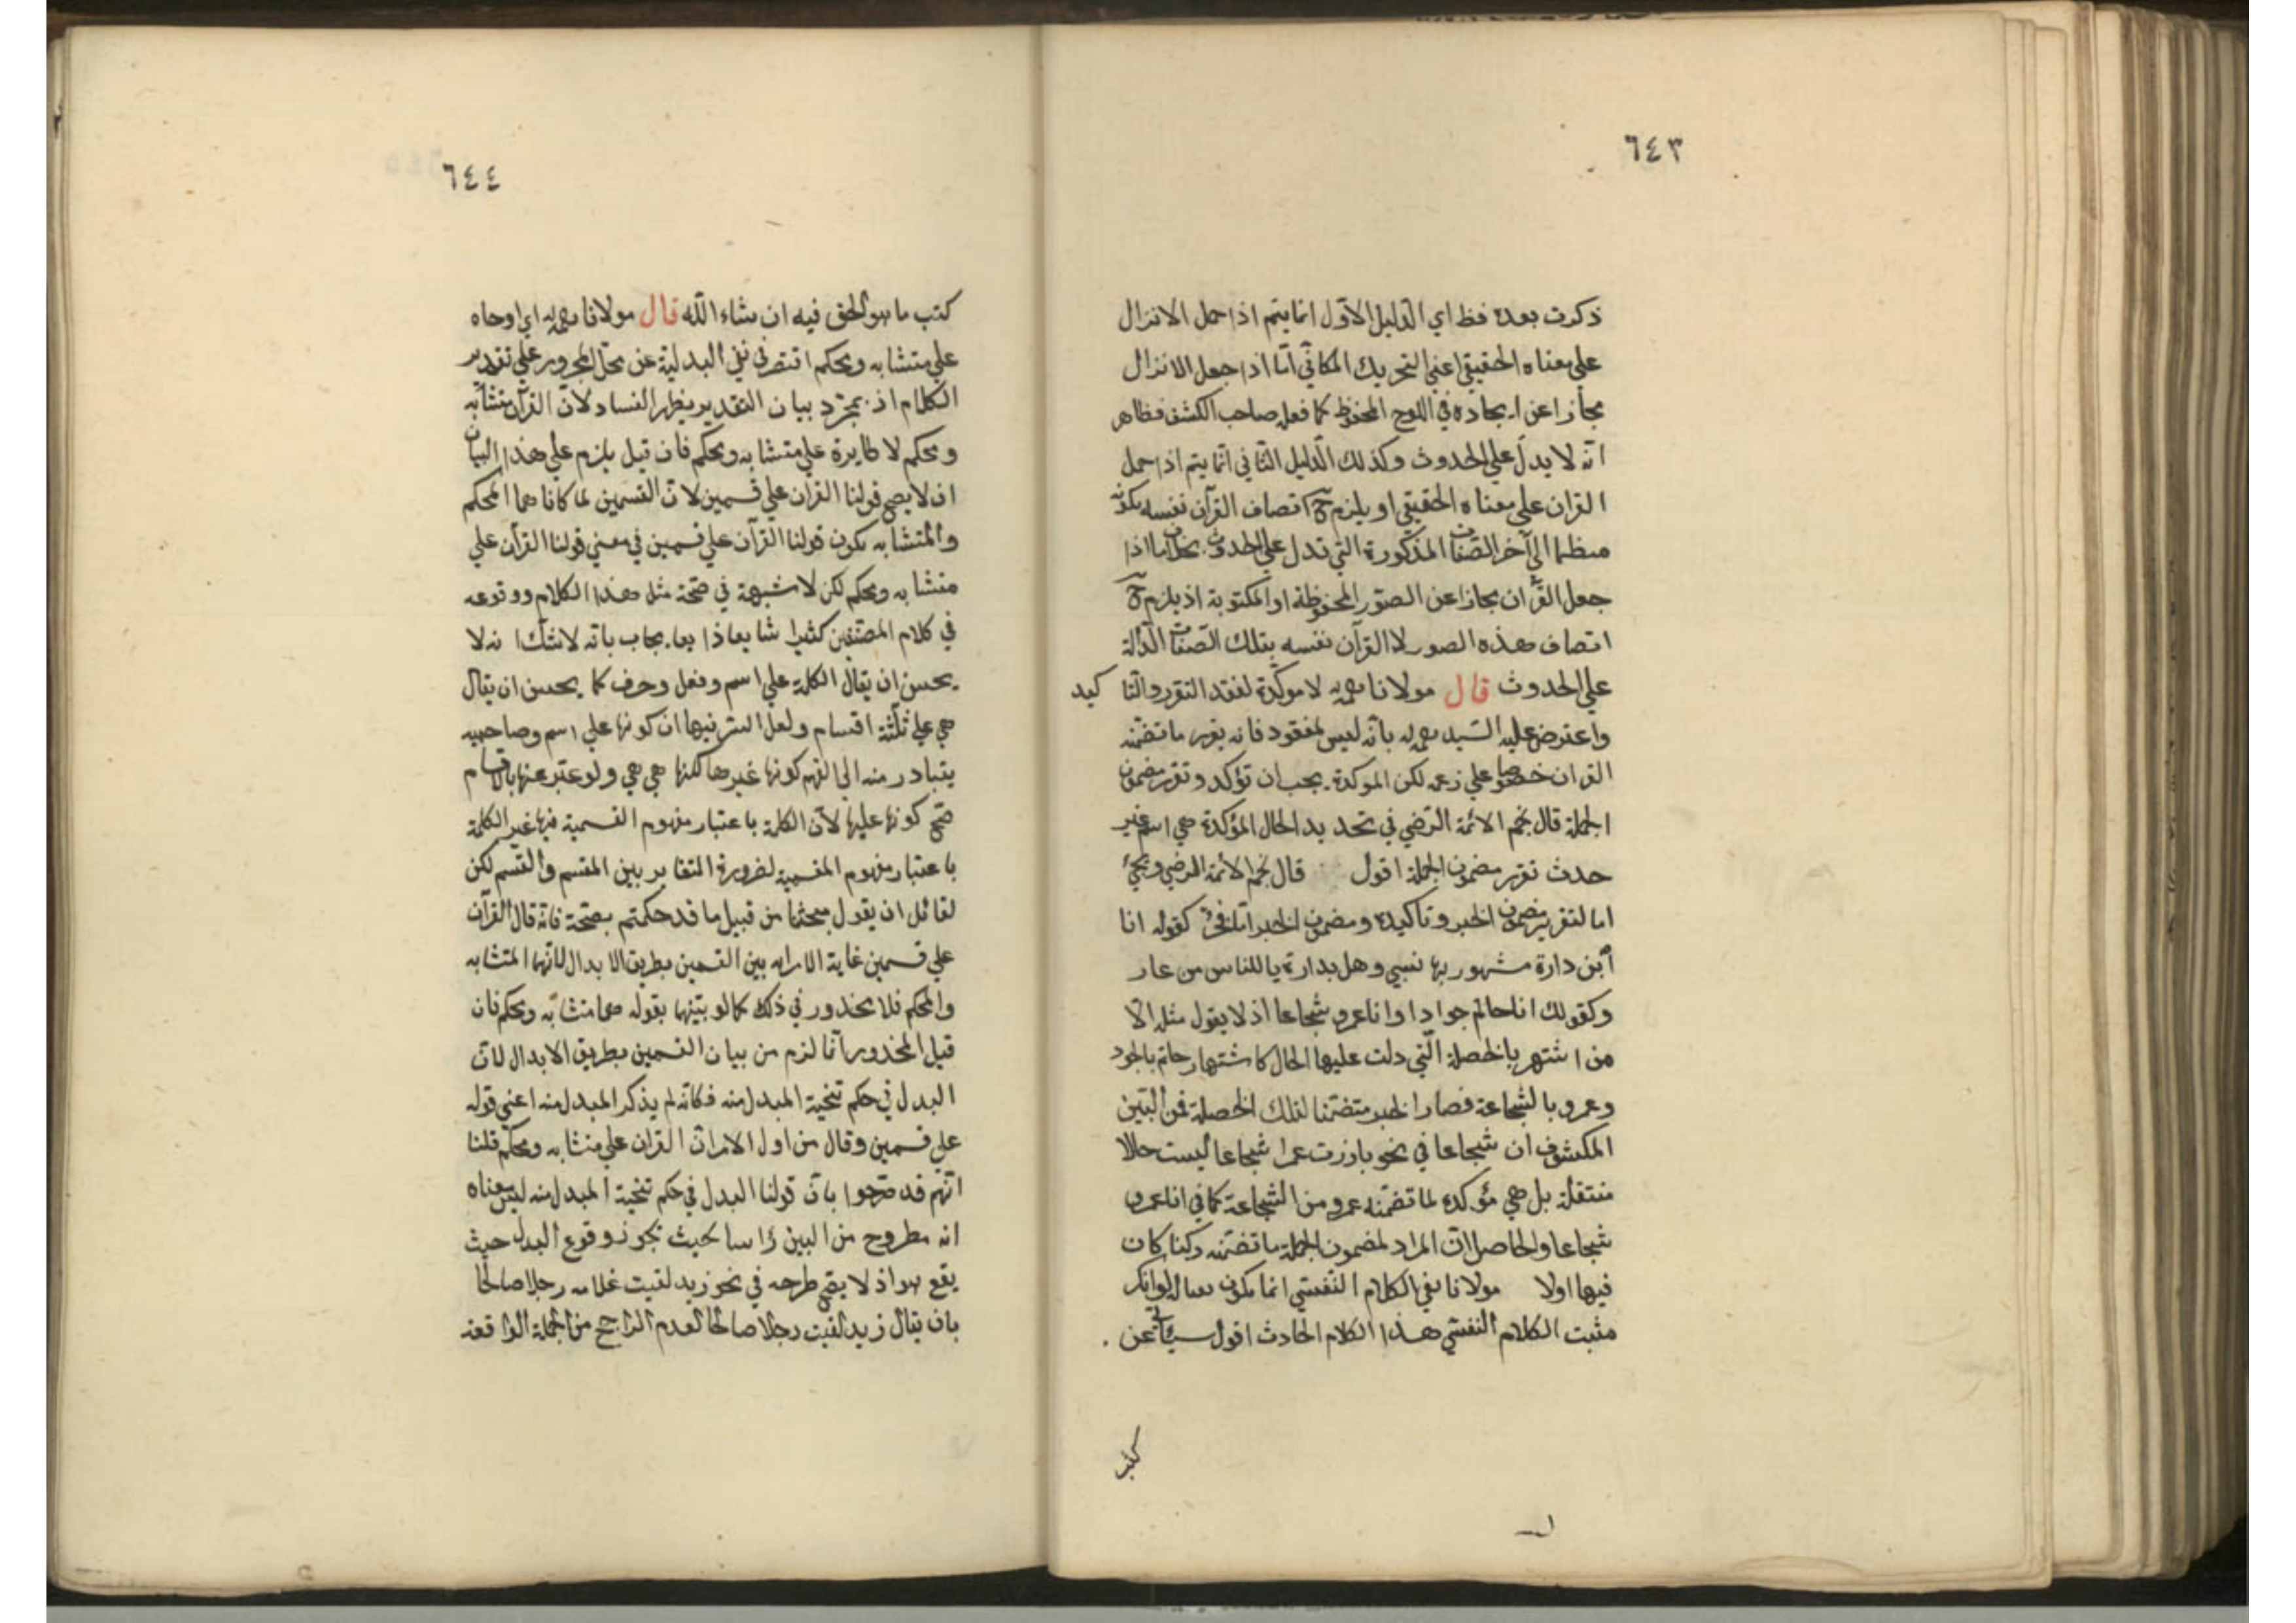 ٦٤٣
ذكرت بعده فظ اي الدليل الاول انما يتم اذا حمل الانزال
علي معناه الحقيقي اعني التحريك المكاني امّا اذا جعل الانزال
مجازا عن ايجاده في اللوح المحفوظ كما فعله صاحب الكشف فظاهر
انّه لا يدلّ علي الحدوث وكذلك الدليل الثاني انما يتم اذا حمل
القران علي معناه الحقيقي او يلزم ح اتصاف القرآن نفسه بكونه
منظما الي آخر الصّفات المذكورة التي تدل علي الحدوث بخلاف ما اذا
جعل القرآن مجازا عن الصور المحفوظة او المكتوبة اذ يلزم ح
اتصاف هذه الصور لا القرآن نفسه بتلك الصّفات الدّالة
علي الحدوث قال مولانا لا موكّدة لفقد التقرر والتا كيد
واعترض عليه السّيد بانّه ليس لمفقود فانه يقرر ما تضمّنه
القران خصوصا علي زعمه لكن الموكدة يجب ان تؤكد وتقرر مضمون
الجملة قال نجم الائمّة الرّضي في تحديد الحال المؤكدة هي اسم غير
حدث تقرر مضمون الجملة اقول قال نجم الائمة الرضي ويجيء
اما لتقرير مضمون الخبر وتاكيده ومضمون الخبر امّا فخر كقوله انا
ابن دارة مشهور بها نسبي وهل بدارة يا للناس من عار
وكقولك انا حاتم جوادا وانا عمرو شجاعا اذ لا يقول مثله الّا
من اشتهر بالخصلة الّتي دلت عليها الحال كاشتهار حاتم بالجود
وعمرو بالشجاعة فصار الخبر متضمّنا لتلك الخصلة فمن البّين
المكشوف ان شجاعا في نحو بارزت عمرا شجاعا ليست حالا
منتقلة بل هي مؤكده لما تضمّنه عمرو من الشجاعة كما في انا عمرو
شجاعا والحاصل انّ المراد لمضمون الجملة ما تضمّنه ركنا كان
فيها اولا مولانا نفي الكلام النّفسّي انما يكون
مثبت الكلام النفسّي هذا الكلام الحادث اقول سيأتي عن
كتب
٦٤٤
كتب ما هو الحق فيه ان شاء اللّه قال مولانا اي اوحاه
علي متشابه ومحكم اقتصر في نفي البدلية عن محل المجرور علي تقدير
الكلام اذ بمجرّد بيان التقدير يظهر الفساد لانّ القرآن متشابه
ومحكم لا طايرة علي متشابه ومحكم فان قيل يلزم علي هذا البيان
ان لا يصح قولنا القران علي قسمين لانّ القسمين لما كانا هما المحكم
والمتشابه يكون قولنا القرآن علي قسمين في معني قولنا القرآن علي
متشابه ومحكم لكن لا شبهة في صحّة مثل هذا الكلام ووقوعه
في كلام المصنّفين كثيرا شايعا ذايعا يجاب بانّه لا شكّ انه لا
يحسن ان يقال الكلمة علي اسم وفعل وحرف كما يحسن ان يقال
هي علي ثلثة اقسام ولعل السّر فيها ان كونها علي اسم وصاحبيه
يتبادر منه الي الفهم كونها غيرها لكنها هي هي ولو عبّر عنها بالاقسام
صّح كونها عليها لانّ الكلمة باعتبار مفهوم القسمية فيها غير الكلمة
باعتبار مفهوم المقسمية لضرورة التغاير بين المقسم والقسم لكن
لقائل ان يقول مبحثنا من قبيل ما قد حكمتم بصّحته فانّه قال القرآن
علي قسمين غاية الامر انه بين القسمين بطريق الابدال لانّهما المتشابه
والمحكم فلا محذور في ذلك كما لو بيّنهما بقوله هما متشابه ومحكم فان
قيل المحذور انّما لزم من بيان القسمين بطريق الابدال لانّ
البدل في حكم تنحية المبدل منه فكانّه لم يذكر المبدل منه اعني قوله
علي قسمين وقال من اول الامر انّ القران علي متشابه ومحكم قلنا
انّهم قد صّرحوا بانّ قولنا البدل في حكم تنحية المبدل منه ليس معناه
انه مطروح من البين رأسا بحيث يجوز وقوع البدل حيث
يقع هو اذ لا يصّح طرحه في نحو زيد لقيت غلامه رجلا صالحا
بان يقال زيد لقيت رجلا صالحا لعدم الراجح من الجملة الواقعة